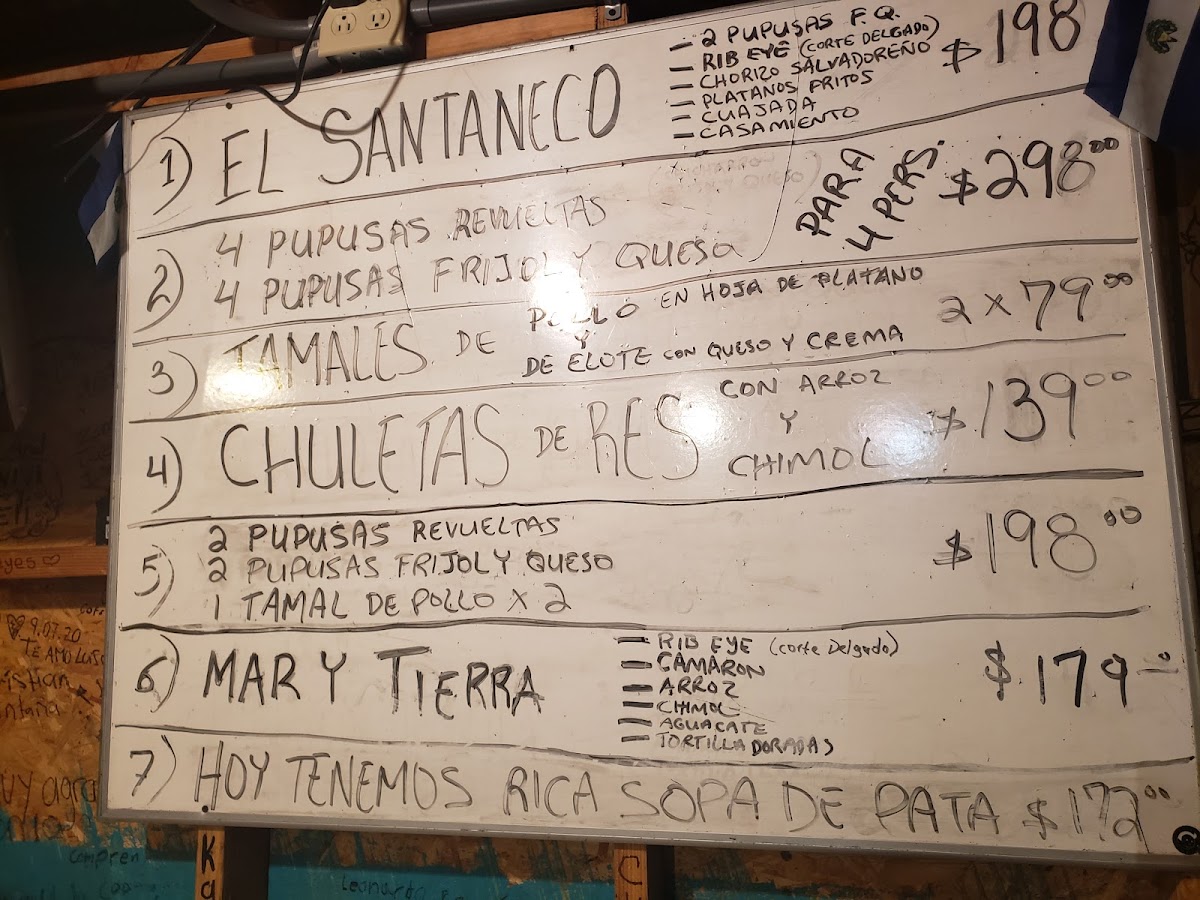 1) EL SANTANECO
- 2 PUPUSAS F.Q.
- RIB EYE (CORTE DELGADO)
- CHORIZO SALVADOREÑO
- PLATANOS FRITOS
- CUAJADA
- CASAMIENTO
$198
2) 4 PUPUSAS REVUELTAS
4 PUPUSAS FRIJOL Y QUESO
PARA
4 PERS.
$298.00
3) TAMALES DE POLLO EN HOJA DE PLATANO
Y
DE ELOTE CON QUESO Y CREMA
2 x 79.00
4) CHULETAS DE RES
CON ARROZ
Y
CHIMOL
$139.00
5) 2 PUPUSAS REVUELTAS
2 PUPUSAS FRIJOL Y QUESO
1 TAMAL DE POLLO X 2
$198.00
6) MAR Y TIERRA
- RIB EYE (corte Delgado)
- CAMARON
- ARROZ
- CHIMOL
- AGUACATE
- TORTILLA DORADAS
$179
7) HOY TENEMOS RICA SOPA DE PATA $172.00
9.07.20
TE AMO
Compren